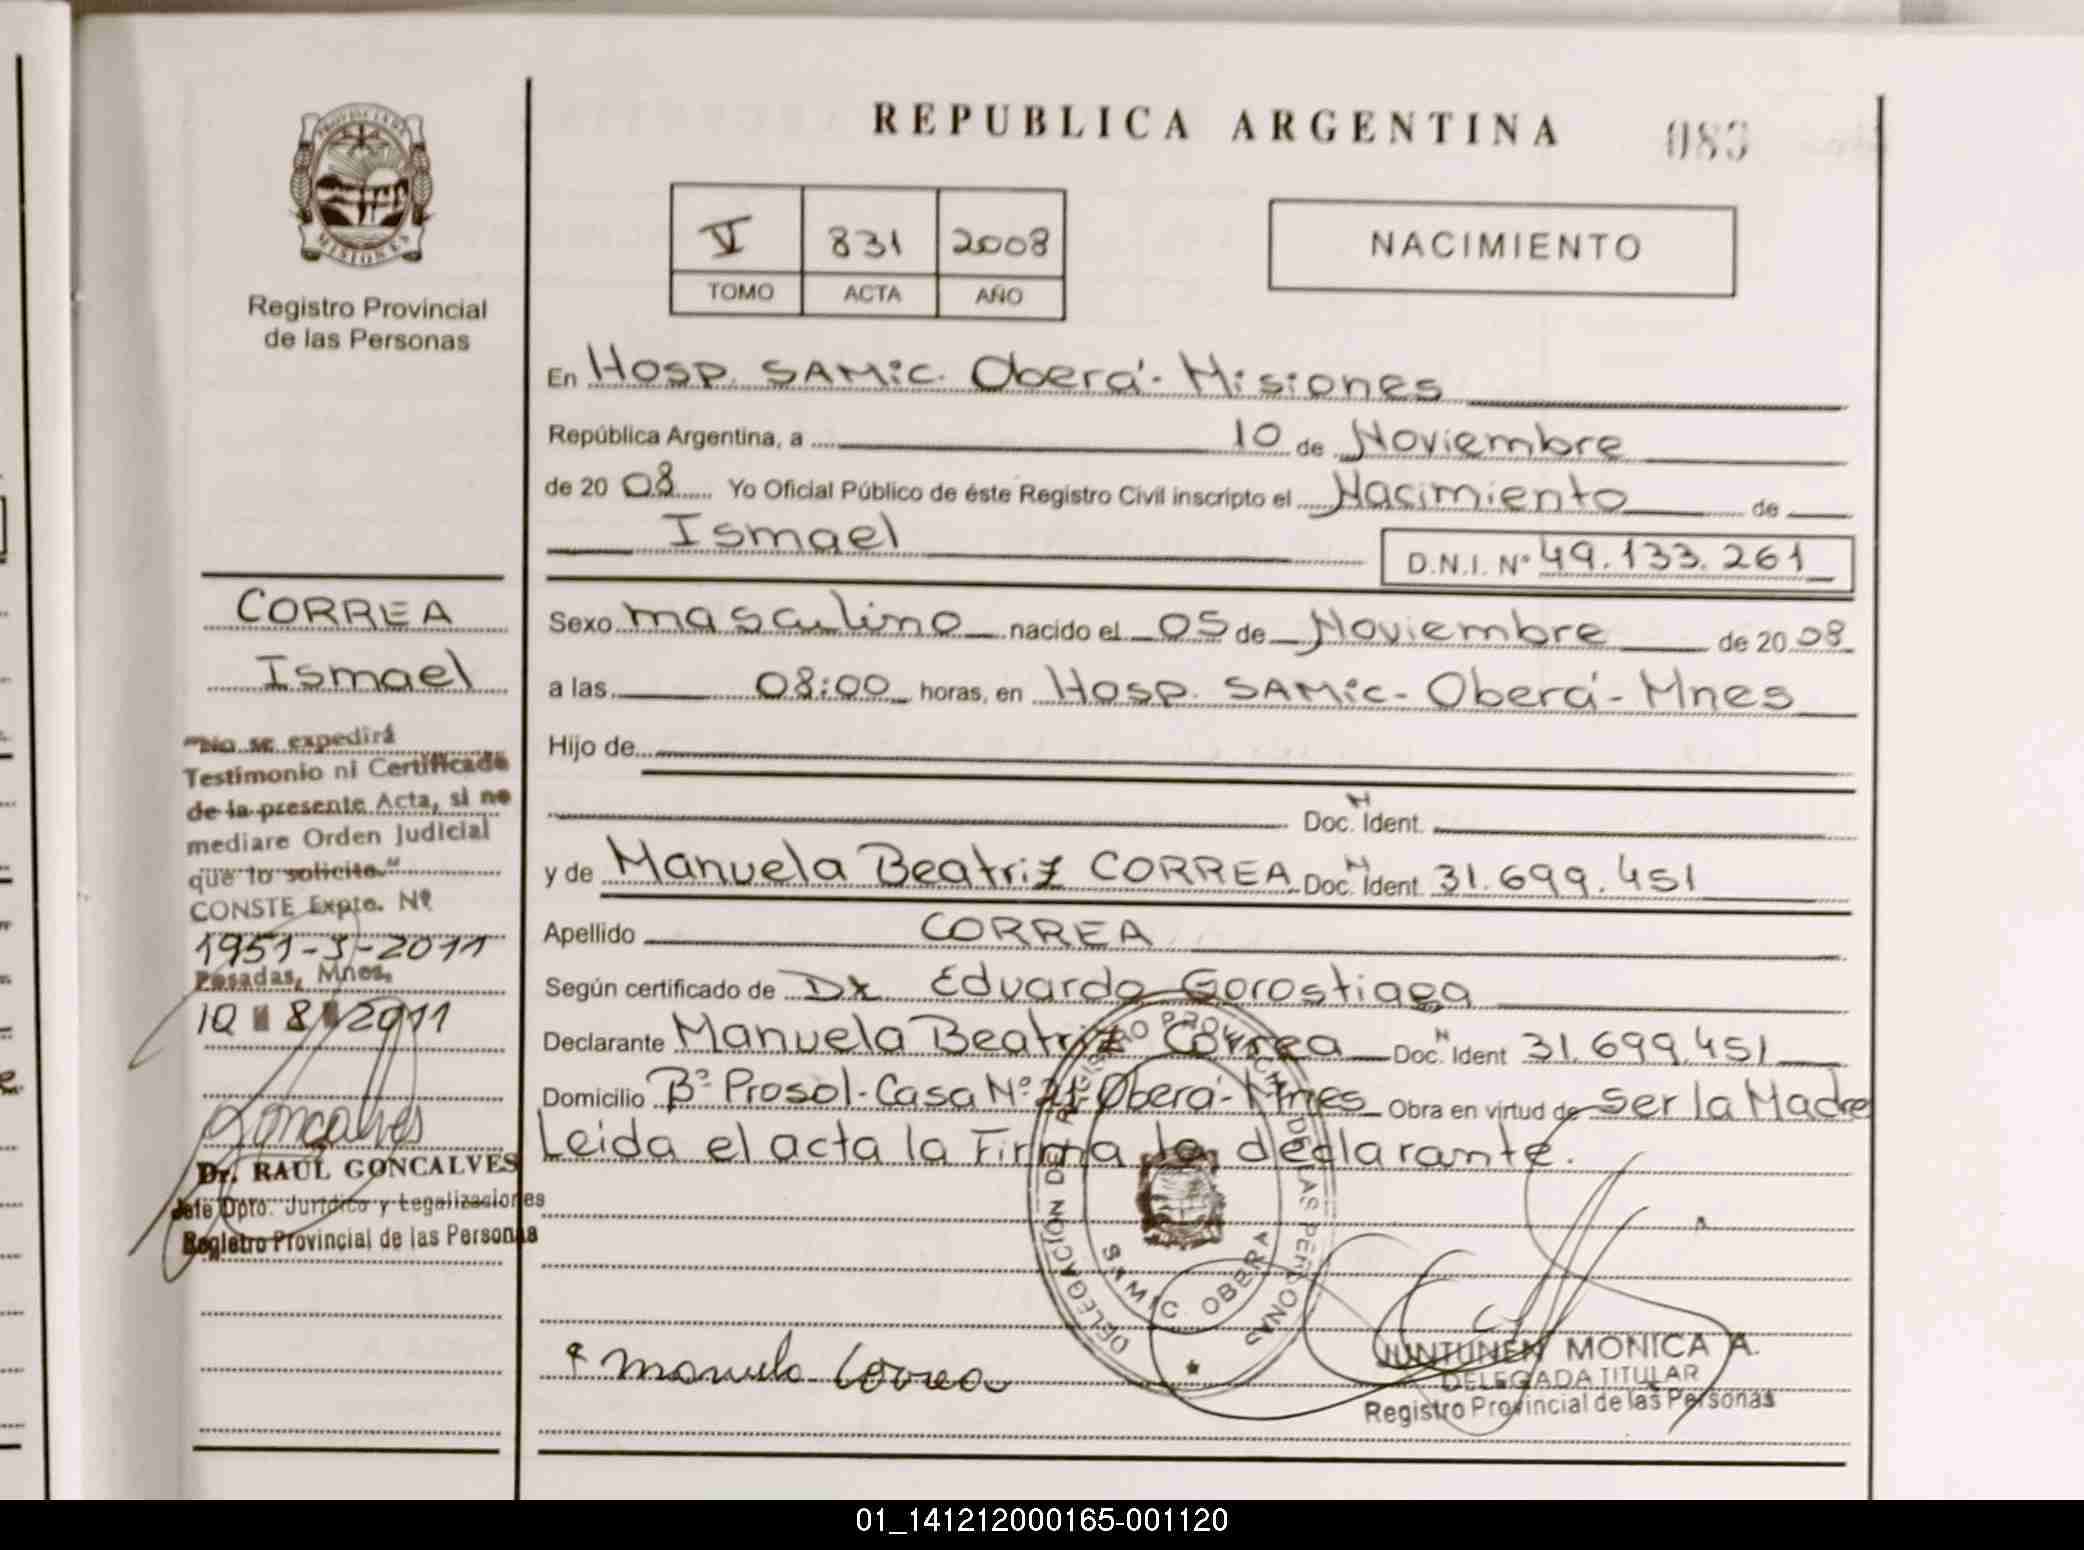 PROVINCIA DE
MISIONES
Registro Provincial
de las Personas
REPUBLICA ARGENTINA 083
V 831 2008
TOMO ACTA AÑO
NACIMIENTO
En Hosp. SAMic. Oberá - Misiones
República Argentina, a 10 de Noviembre
de 20 08 Yo Oficial Público de éste Registro Civil inscripto el Nacimiento de
Ismael D.N.I. Nº 49.133.261
Sexo masculino nacido el 05 de Noviembre de 20 08
a las 08:00 horas, en Hosp. SAMic - Oberá - Mnes
Hijo de
Doc. N Ident.
y de Manuela Beatriz CORREA Doc. N Ident. 31.699.451
Apellido CORREA
Según certificado de Dr Eduardo Gorostiaga
Declarante Manuela Beatriz Correa Doc. N Ident 31.699.451
Domicilio Bº Prosol - Casa Nº 21 - Oberá - Mnes Obra en virtud de ser la Madre
Leida el acta la Firma la declarante.
CORREA
Ismael
"No se expedirá
Testimonio ni Certificado
de la presente Acta, si no
mediare Orden Judicial
que lo solicite."
CONSTE Expte. Nº
1951-J-2011
Posadas, Mnes.
10 8 2011
Goncalves
Dr. RAUL GONCALVES
Jefe Dpto. Jurídico y Legalizaciones
Registro Provincial de las Personas
DELEGACIÓN DEL REGISTRO PROVINCIAL DE LAS PERSONAS
SAMIC OBERA
Manuela Correa
JUNTUNEN MONICA A.
DELEGADA TITULAR
Registro Provincial de las Personas
01_141212000165-001120